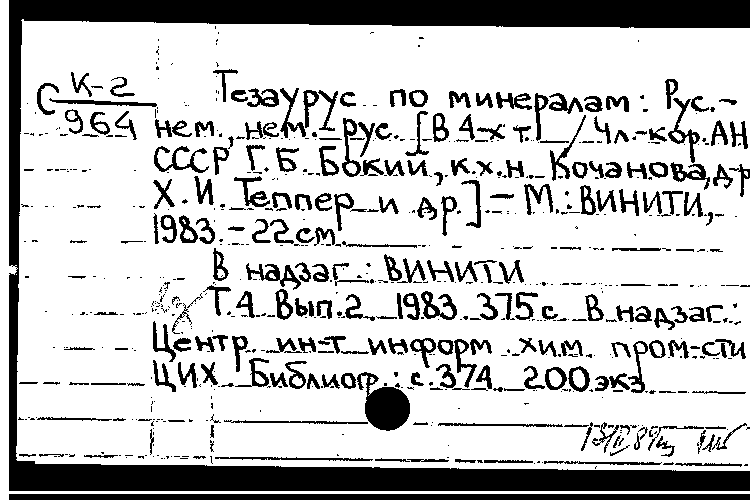 С К-2/964
Тезаурус по минералам: Рус.-
нем., нем.-рус. [В 4-х т. / Чл.-кор. АН
СССР Г.Б. Бокий, к.х.н. Кочанова, др
Х.И. Теппер и др.] - М.: ВИНИТИ,
1983. - 22 см.
В надзаг.: ВИНИТИ
Т.4 Вып.2. 1983. 375 с В надзаг.:
Центр ин-т информ. хим. пром-сти
ЦИХ. Библиогр.: с.374. 200 экз